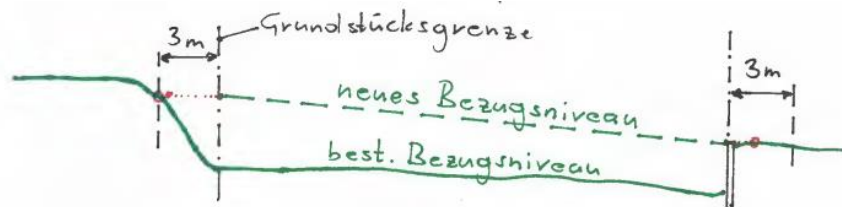 3m
Grundstücksgrenze
3m
neues Bezugsniveau
best. Bezugsniveau